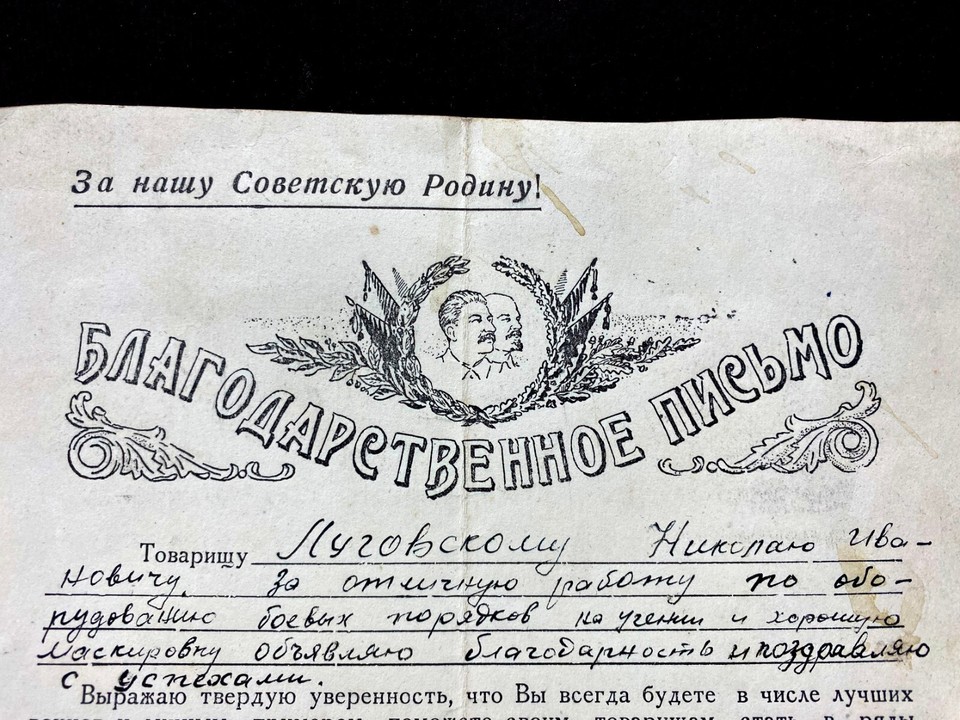 За нашу Советскую Родину!
БЛАГОДАРСТВЕННОЕ ПИСЬМО
Товарищу Луговскому Николаю Ива-
новичу. За отличную работу по обо-
рудованию боевых порядков на учении и хорошую
маскировку объявляю благодарность и поздравляю
с успехами.
Выражаю твердую уверенность, что Вы всегда будете в числе лучших
личным примером поможете своим товарищам стать в ряды